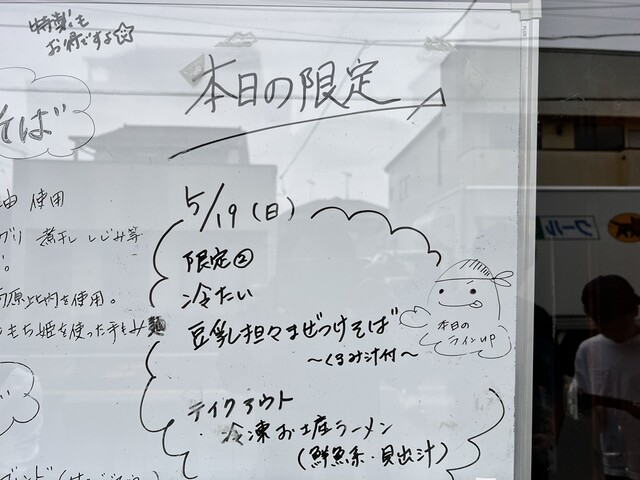 特製も
お得ですよ☆
本日の限定
そば
油 使用
煮干 しじみ等
を使用。
もち姫を使った手もみ麺
5/19(日)
限定②
冷たい
豆乳担々まぜつけそば
～くるみ汁付～
本日の
ラインUP
テイクアウト
・冷凍お土産ラーメン
(鮮魚系・貝出汁)
クール